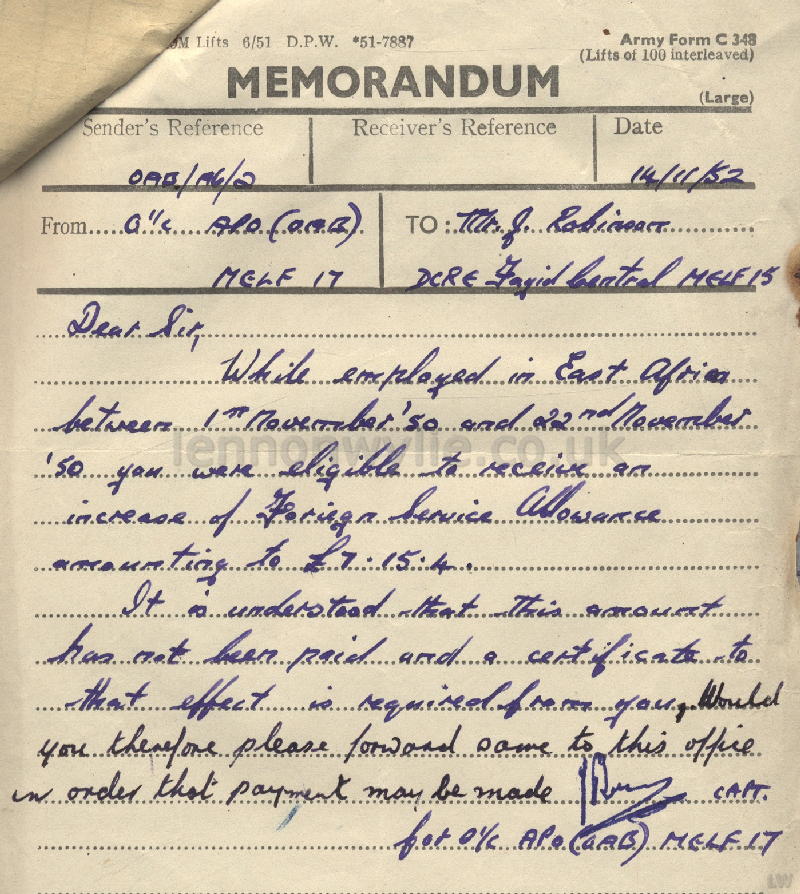 0M Lifts 6/51 D.P.W. *51-7887
Army Form C 348
(Lifts of 100 interleaved)
MEMORANDUM
(Large)
Sender's Reference Receiver's Reference Date
OAB/A6/2 14/11/52
From O i/c APO (OAB) TO: Mr. J. Robinson
MELF 17 DCRE Fayid Central MELF 15
Dear Sir,
While employed in East Africa
between 1st November '50 and 22nd November
'50 you were eligible to receive an
increase of Foriegn Service Allowance
amounting to £7.15.4.
It is understood that this amount
has not been paid and a certificate to
that effect is required from you, Would
you therefore please forward same to this office
in order that payment may be made CAPT.
for O i/c APO (OAB) MELF 17
lennonwylie.co.uk
LW